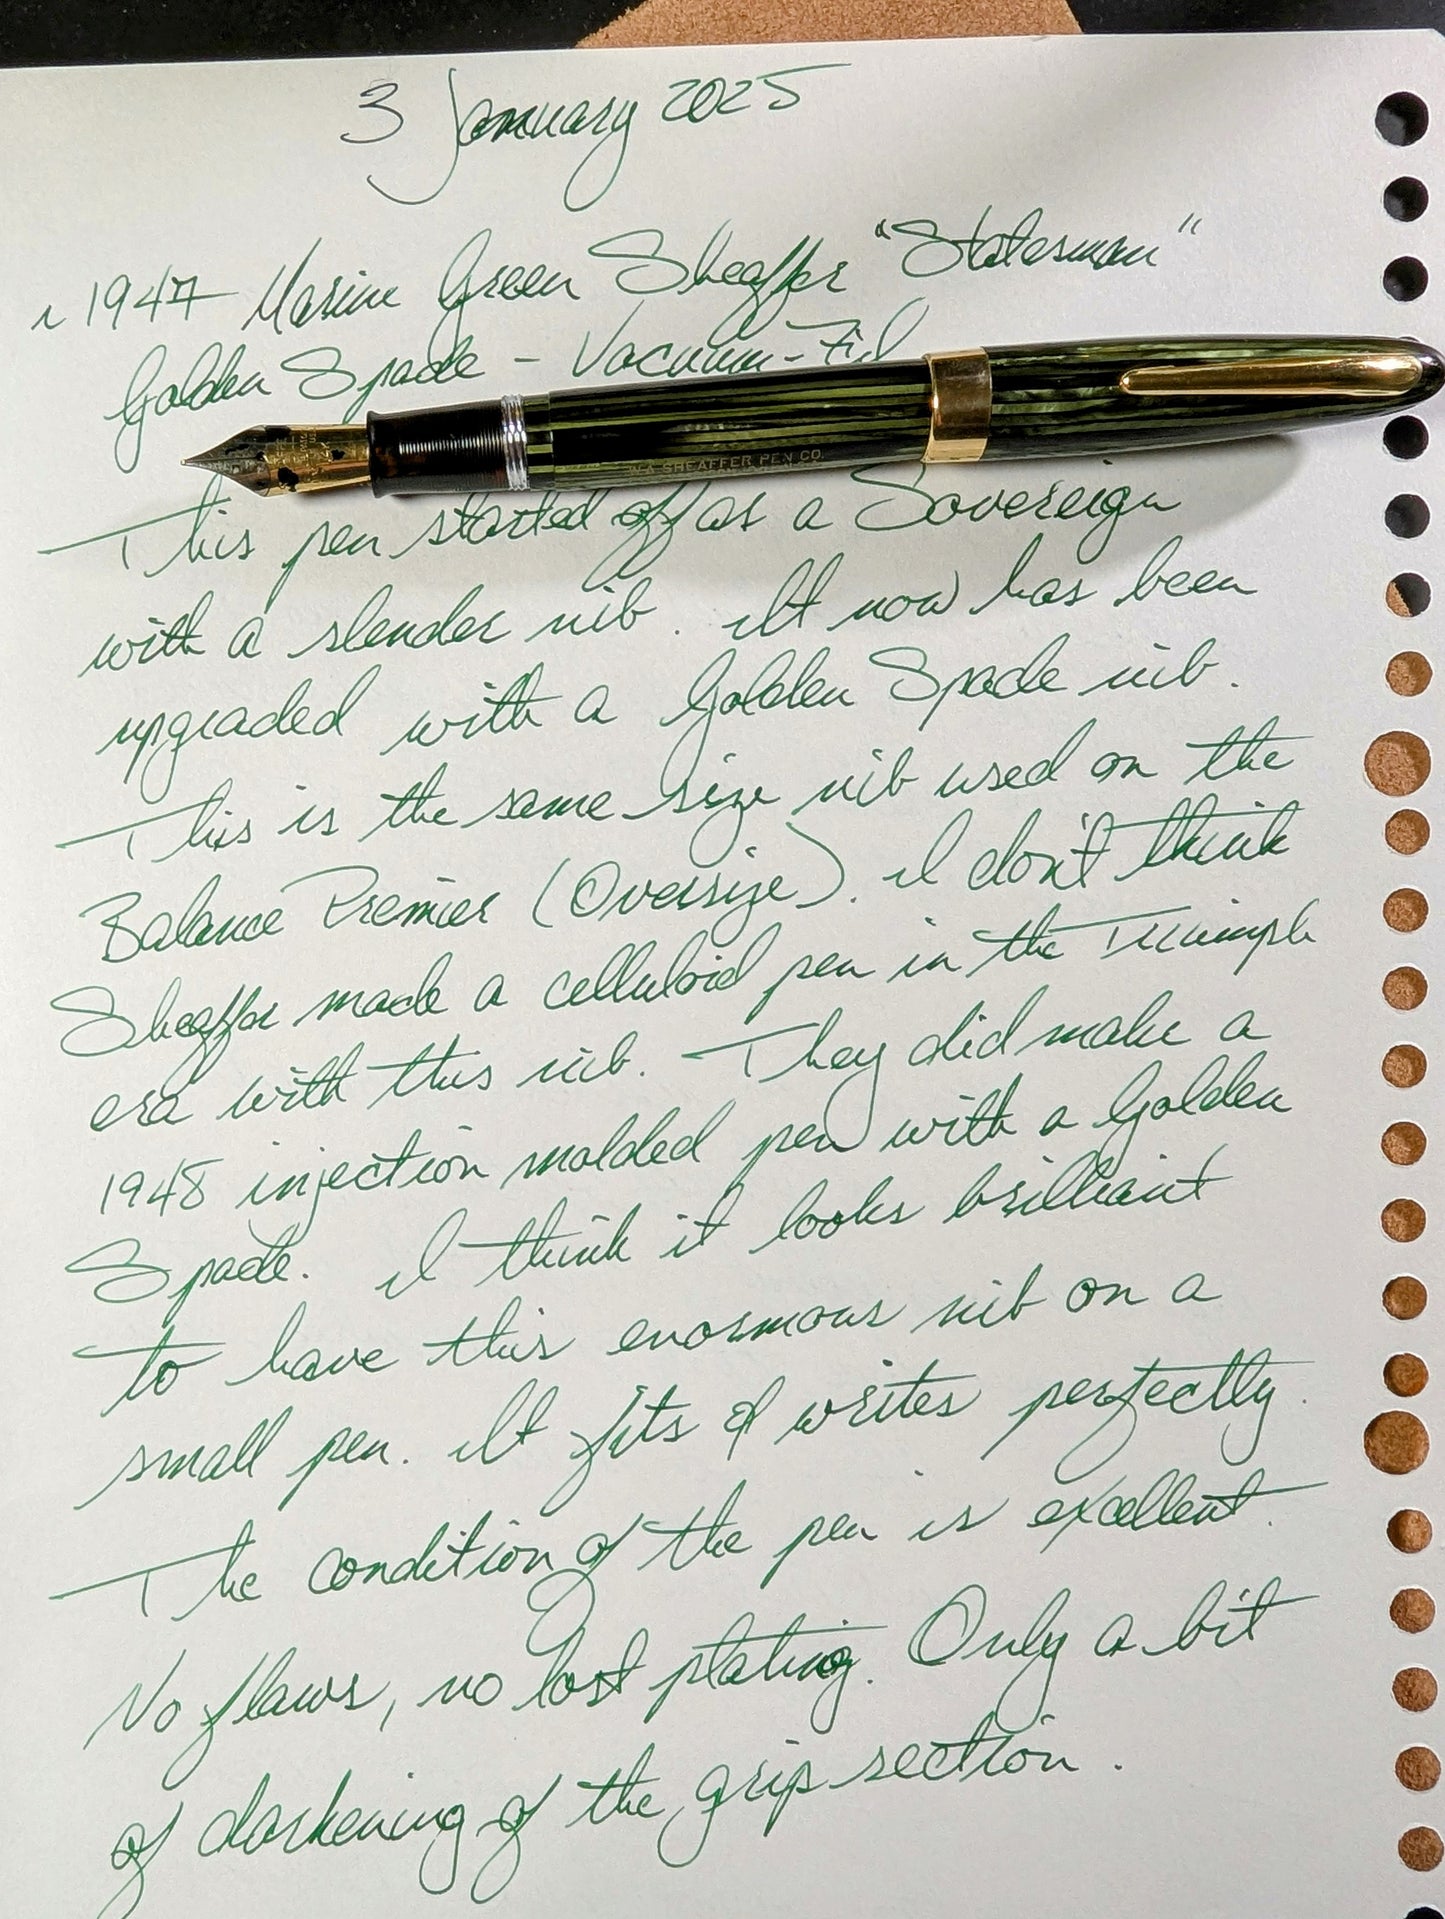 3 January 2025
~ 1947 Marine Green Sheaffer "Statesman"
Golden Spade - Vacuum-Fil
W.A. SHEAFFER PEN CO.
This pen started off as a Sovereign
with a slender nib. It now has been
upgraded with a Golden Spade nib.
This is the same size nib used on the
Balance Premier (Oversize). I don't think
Sheaffer made a celluloid pen in the Triumph
era with this nib. They did make a
1948 injection molded pen with a Golden
Spade. I think it looks brilliant
to have this enormous nib on a
small pen. It fits & writes perfectly.
The condition of the pen is excellent.
No flaws, no lost plating. Only a bit
of darkening of the grip section.